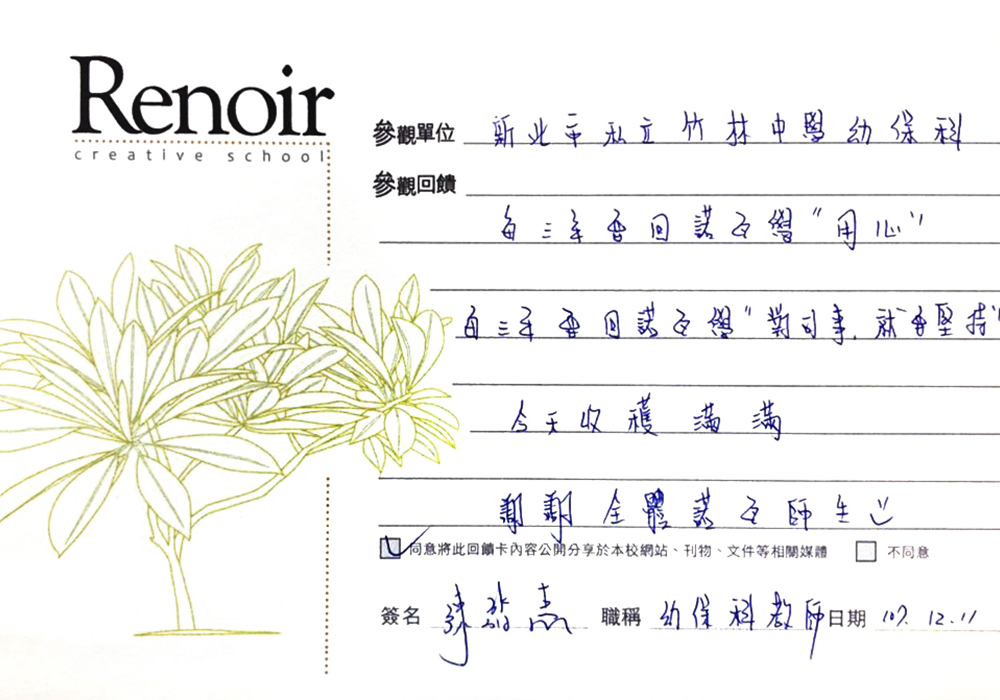 Renoir
creative school
參觀單位 新北市私立竹林中學幼保科
參觀回饋
每三年會回諾瓦學“用心”
每三年會回諾瓦學“對的事，就會堅持”
今天收穫滿滿
謝謝全體諾瓦師生
同意將此回饋卡內容公開分享於本校網站、刊物、文件等相關媒體 不同意
簽名 職稱 幼保科教師 日期 107.12.11